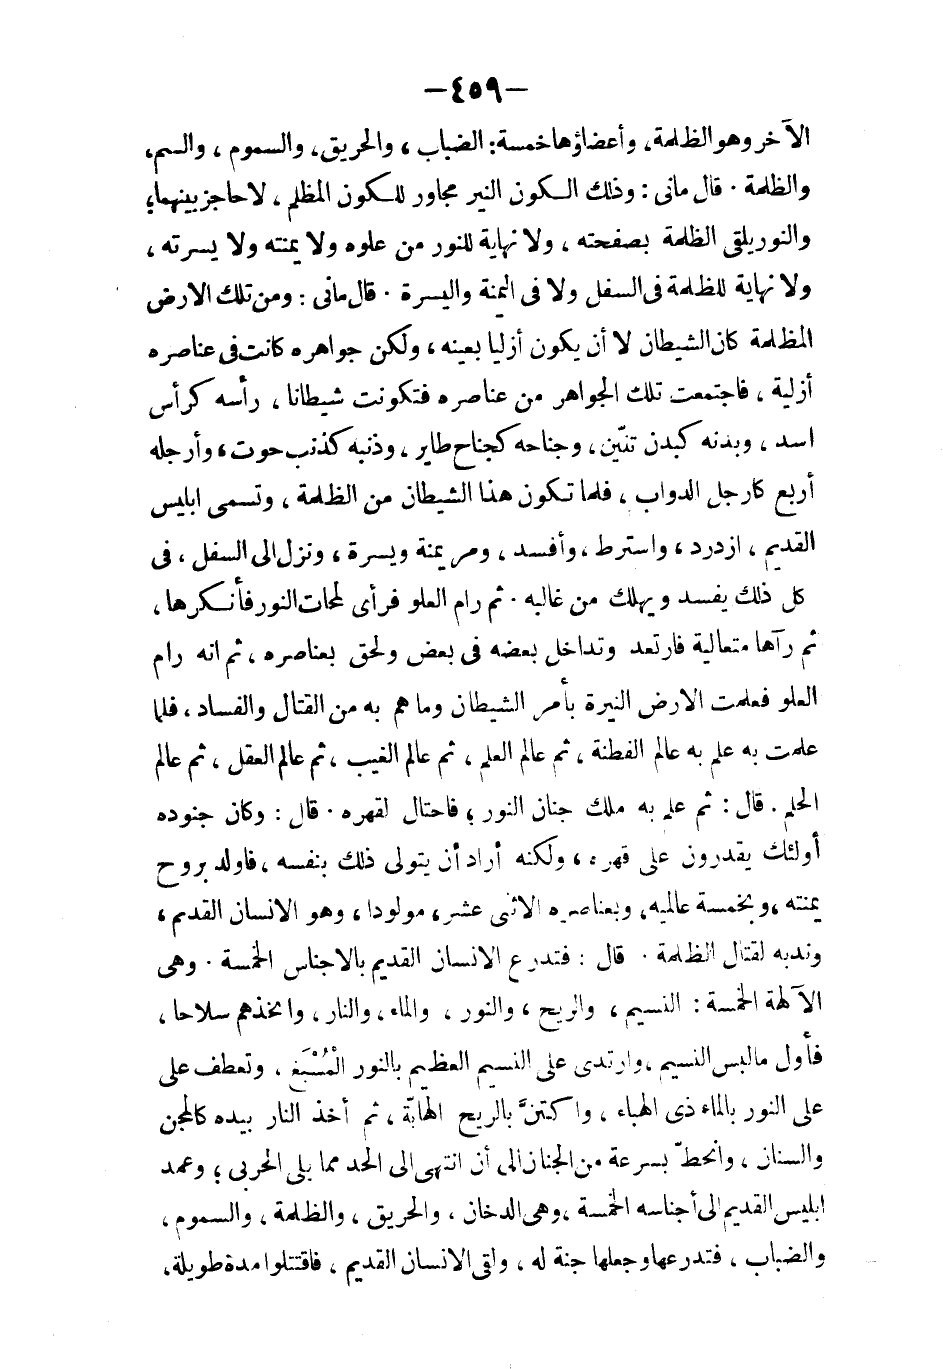 -٤٥٩-
الآخر وهو الظلمة، وأعضاؤها خمسة: الضباب، والحريق، والسموم، والسم،
والظلمة. قال مانى: وذلك الكون النير مجاور للكون المظلم، لا حاجز بينهما؛
والنور يلقى الظلمة بصفحته، ولا نهاية للنور من علوه ولا يمنته ولا يسرته،
ولا نهاية للظلمة فى السفل ولا فى اليمنة واليسرة. قال مانى: ومن تلك الارض
المظلمة كان الشيطان لا أن يكون أزليا بعينه، ولكن جواهره كانت فى عناصره
أزلية، فاجتمعت تلك الجواهر من عناصره فتكونت شيطانا، رأسه كرأس
اسد، وبدنه كبدن تنّين، وجناحه كجناح طاير، وذنبه كذنب حوت، وأرجله
أربع كارجل الدواب، فلما تكون هذا الشيطان من الظلمة، وتسمى ابليس
القديم، ازدرد، واسترط، وأفسد، ومر يمنة ويسرة، ونزل الى السفل، فى
كل ذلك يفسد ويهلك من غالبه. ثم رام العلو فرأى لمحات النور فأنكرها،
ثم رآها متعالية فارتعد وتداخل بعضه فى بعض ولحق بعناصره، ثم انه رام
العلو فعلمت الارض النيرة بأمر الشيطان وما هم به من القتال والفساد، فلما
علمت به علم به عالم الفطنة، ثم عالم العلم، ثم عالم الغيب، ثم عالم العقل، ثم عالم
الحلم. قال: ثم علم به ملك جنان النور؛ فاحتال لقهره. قال: وكان جنوده
أولئك يقدرون على قهره، ولكنه أراد أن يتولى ذلك بنفسه، فاولد بروح
يمنته، وبخمسة عالميه، وبعناصره الاثنى عشر، مولودا، وهو الانسان القديم،
وندبه لقتال الظلمة. قال: فتدرع الانسان القديم بالاجناس الخمسة. وهى
الآلهة الخمسة: النسيم، والريح، والنور، والماء، والنار، واتخذهم سلاحا،
فأول ما لبس النسيم، وارتدى على النسيم العظيم بالنور الْمُسْبَغ، وتعطف على
على النور بالماء ذى الهباء، واكتنَّ بالريح الهابّة، ثم أخذ النار بيده كالمجن
والسنان، وانحطّ بسرعة من الجنان الى أن انتهى الى الحد مما يلى الحربى؛ وعمد
ابليس القديم الى أجناسه الخمسة، وهى الدخان، والحريق، والظلمة، والسموم،
والضباب، فتدرعها وجعلها جنة له، ولقى الانسان القديم، فاقتتلوا مدة طويلة،